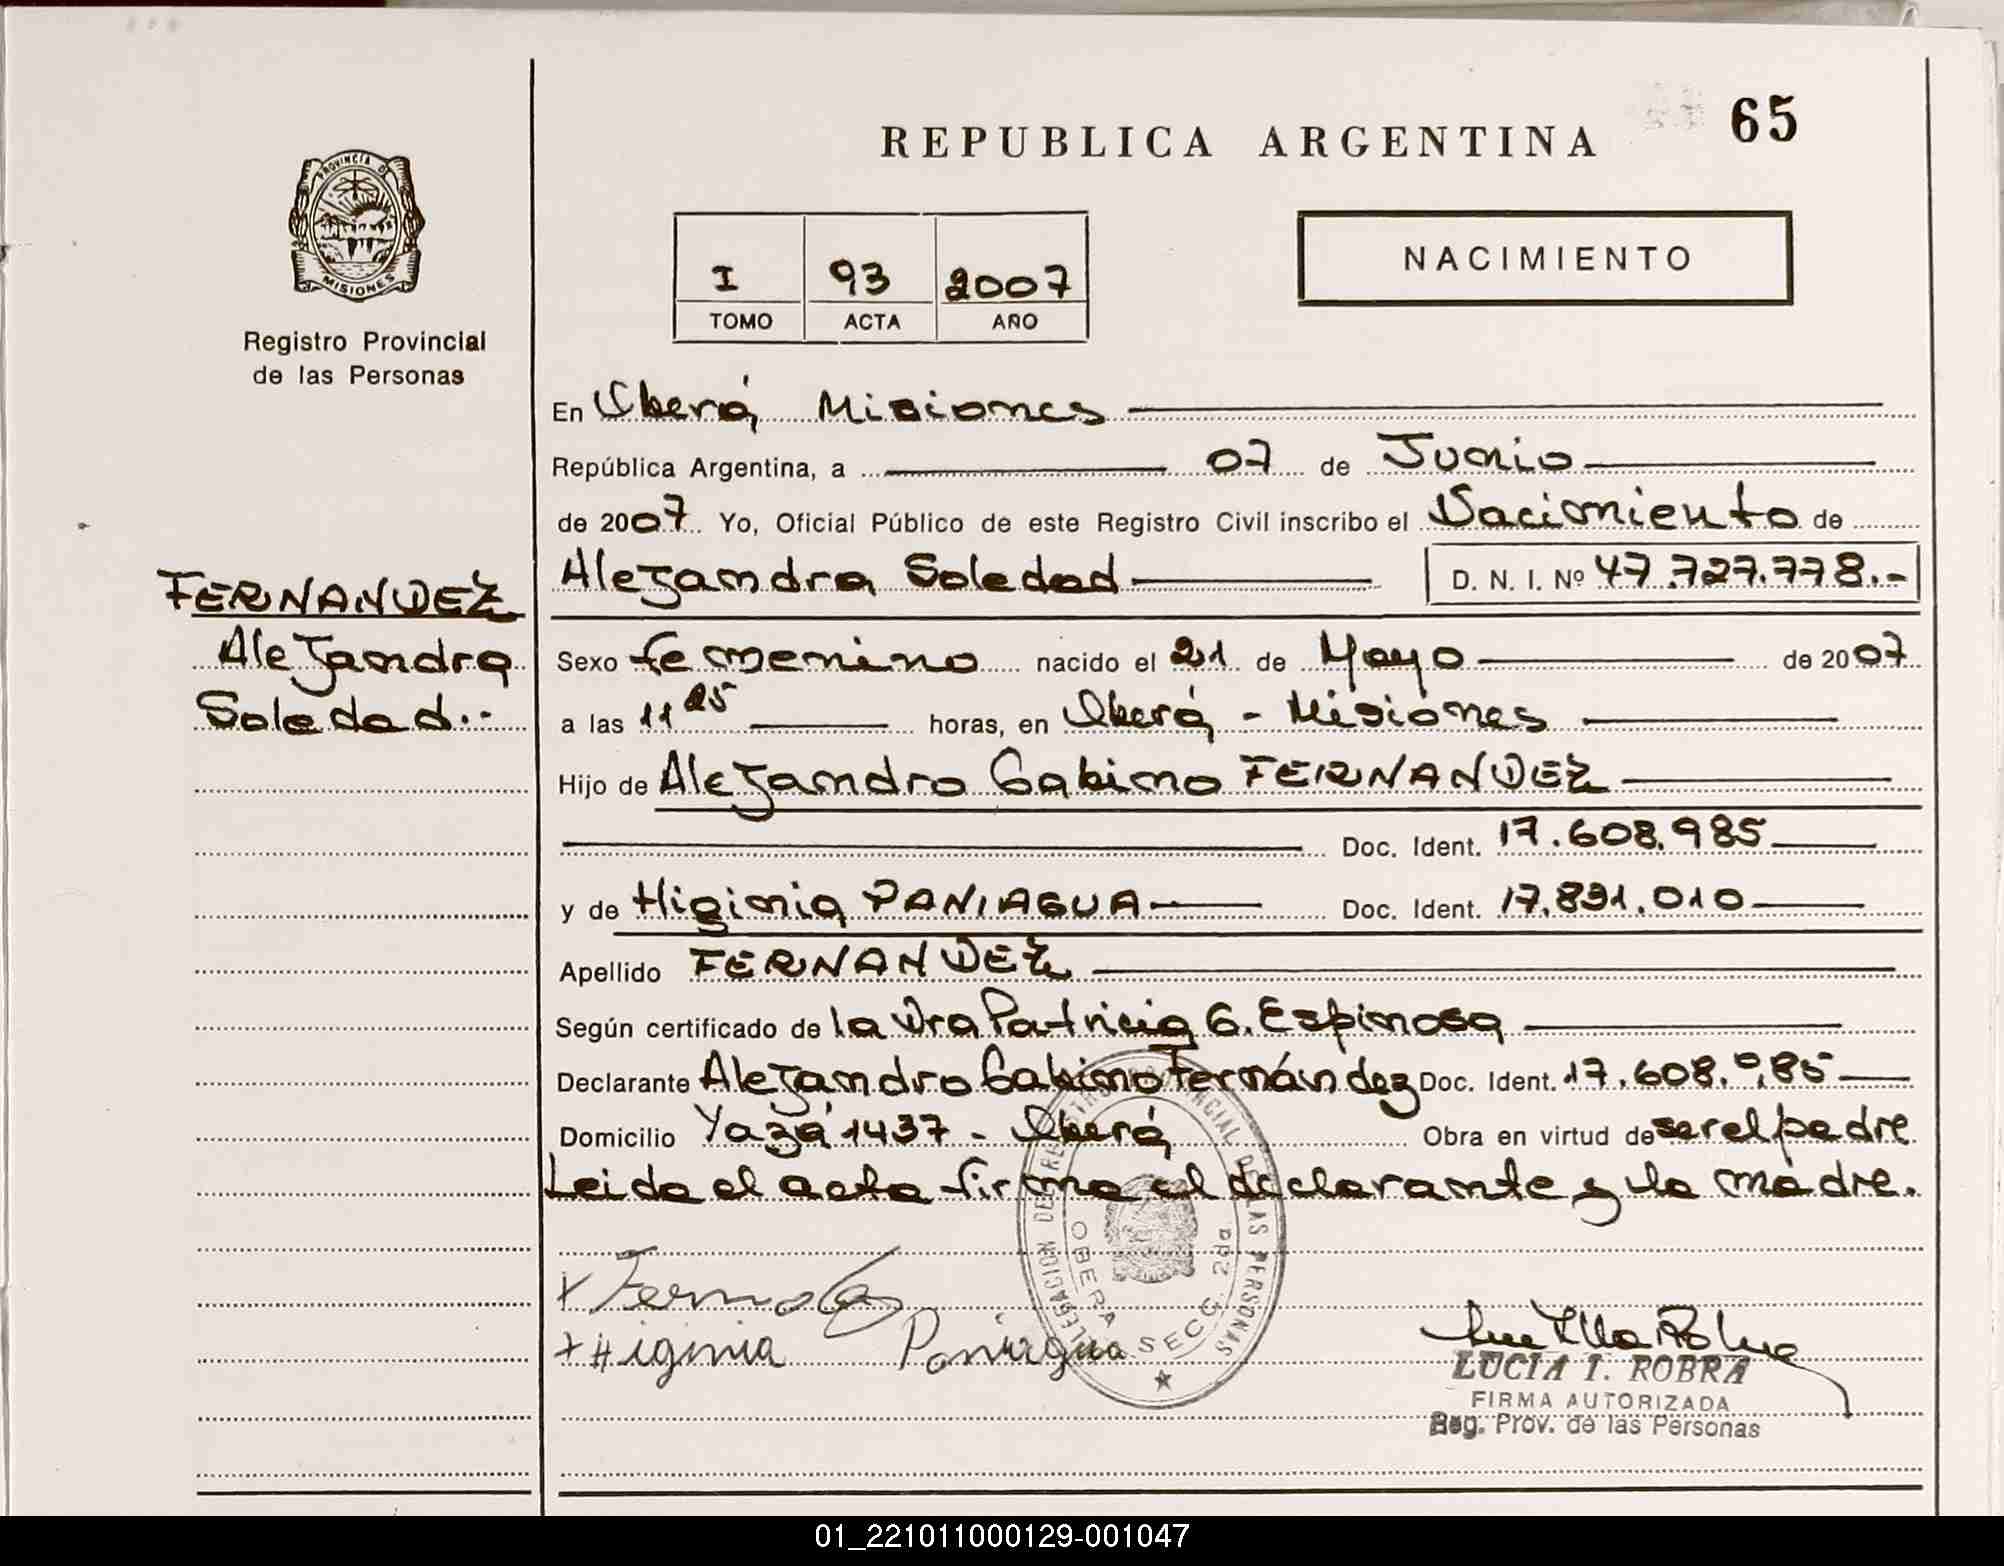 REPUBLICA ARGENTINA
65
PROVINCIA DE
MISIONES
Registro Provincial
de las Personas
I 93 2007
TOMO ACTA AÑO
NACIMIENTO
En Oberá, Misiones
República Argentina, a 07 de Junio
de 2007 Yo, Oficial Público de este Registro Civil inscribo el Nacimiento de
Alejandra Soledad D. N. I. Nº 47.727.778.-
FERNANDEZ
Alejandra
Soledad.-
Sexo femenino nacido el 21 de Mayo de 2007
a las 11 25 horas, en Oberá - Misiones
Hijo de Alejandro Gabino FERNANDEZ
Doc. Ident. 17.608.985
y de Higinia PANIAGUA Doc. Ident. 17.831.010
Apellido FERNANDEZ
Según certificado de la Dra Patricia G. Espinosa
Declarante Alejandro Gabino Fernández Doc. Ident. 17.608.985
Domicilio Yazá 1437 - Oberá Obra en virtud de ser el padre
Leida el acta firma el declarante y la madre.
DELEGACION DEL REGISTRO PROVINCIAL DE LAS PERSONAS
OBERA SECC. 2da
x
x Higinia Paniagua
LUCIA I. ROBRA
FIRMA AUTORIZADA
Reg. Prov. de las Personas
01_221011000129-001047